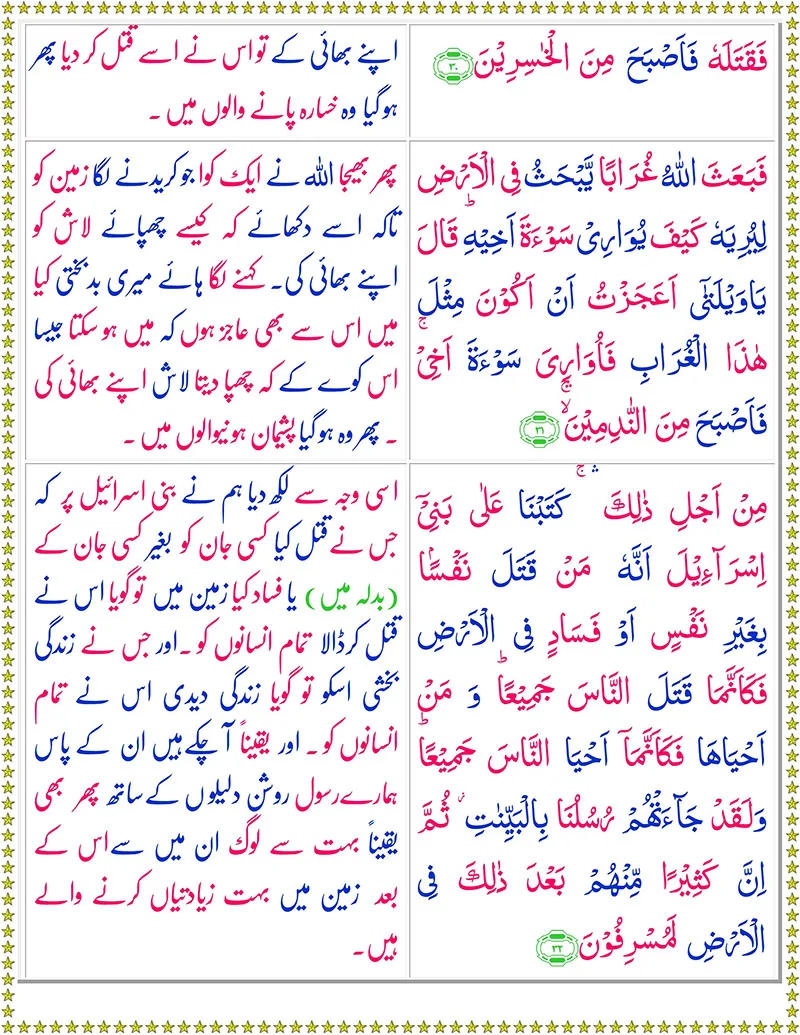 فَقَتَلَهٗ فَاَصْبَحَ مِنَ الْخٰسِرِيْنَ ۳۰
اپنے بھائی کے تو اس نے اسے قتل کر دیا پھر
ہوگیا وہ خسارہ پانے والوں میں ۔
فَبَعَثَ اللّٰهُ غُرَابًا يَّبْحَثُ فِى الْاَرْضِ
لِيُرِيَهٗ كَيْفَ يُوَارِىْ سَوْءَةَ اَخِيْهِ ؕ قَالَ
يَاوَيْلَتٰٓى اَعَجَزْتُ اَنْ اَكُوْنَ مِثْلَ
هٰذَا الْغُرَابِ فَاُوَارِىَ سَوْءَةَ اَخِىْ ۚ
فَاَصْبَحَ مِنَ النّٰدِمِيْنَ ۙ ۳۱
پھر بھیجا اللہ نے ایک کوا جو کریدنے لگا زمین کو
تاکہ اسے دکھائے کہ کیسے چھپائے لاش کو
اپنے بھائی کی۔ کہنے لگا ہائے میری بدبختی کیا
میں اس سے بھی عاجز ہوں کہ میں ہو سکتا جیسا
اس کوے کے کہ چھپا دیتا لاش اپنے بھائی کی
۔ پھر وہ ہوگیا پشیمان ہونیوالوں میں ۔
مِنْ اَجْلِ ذٰلِكَ ۛۚ كَتَبْنَا عَلٰى بَنِىْٓ
اِسْرَآءِيْلَ اَنَّهٗ مَنْ قَتَلَ نَفْسًۢا
بِغَيْرِ نَفْسٍ اَوْ فَسَادٍ فِى الْاَرْضِ
فَكَاَنَّمَا قَتَلَ النَّاسَ جَمِيْعًا ؕ وَ مَنْ
اَحْيَاهَا فَكَاَنَّمَاۤ اَحْيَا النَّاسَ جَمِيْعًا ؕ
وَلَقَدْ جَآءَتْهُمْ رُسُلُنَا بِالْبَيِّنٰتِ ۫ ثُمَّ
اِنَّ كَثِيْرًا مِّنْهُمْ بَعْدَ ذٰلِكَ فِى
الْاَرْضِ لَمُسْرِفُوْنَ ۳۲
اسی وجہ سے لکھ دیا ہم نے بنی اسرائیل پر کہ
جس نے قتل کیا کسی جان کو بغیر کسی جان کے
(بدلہ میں) یا فساد کیا زمین میں تو گویا اس نے
قتل کرڈالا تمام انسانوں کو ۔اور جس نے زندگی
بخشی اسکو تو گویا زندگی دیدی اس نے تمام
انسانوں کو ۔ اور یقیناً آ چکے ہیں ان کے پاس
ہمارے رسول روشن دلیلوں کے ساتھ پھر بھی
یقیناً بہت سے لوگ ان میں سے اس کے
بعد زمین میں بہت زیادتیاں کرنے والے
ہیں۔